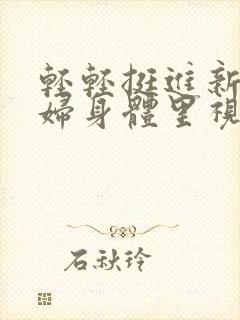 輕輕挺進新
婦身體里視
石秋玲